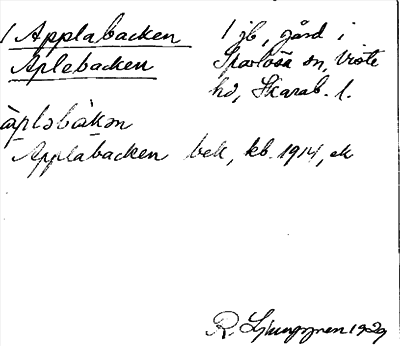 1 Applabacken 1 jb, gård i
Aplebacken Sparlösa sn, Viste
hd, Skarab. l.
àplabàkən
Applabacken bek, kb. 1914, ek
R. Ljunggren 1929